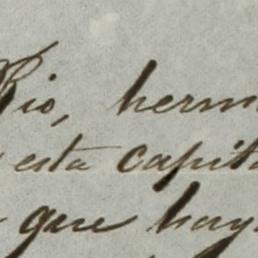 Rio, herm
esta capit
que hay